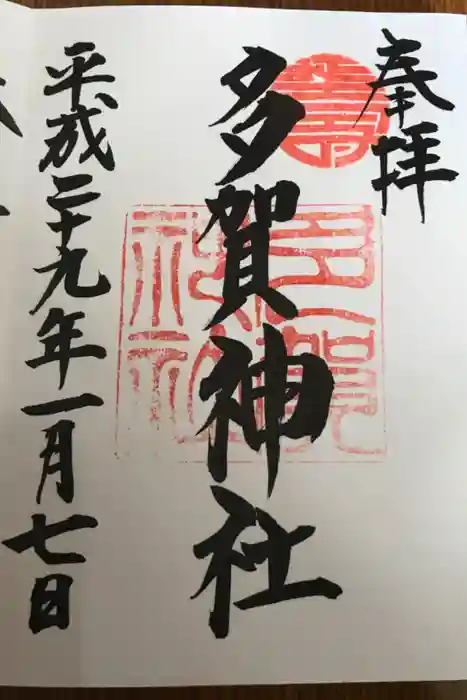 奉拝
壽
多賀神社
多賀神社
平成二十九年一月七日